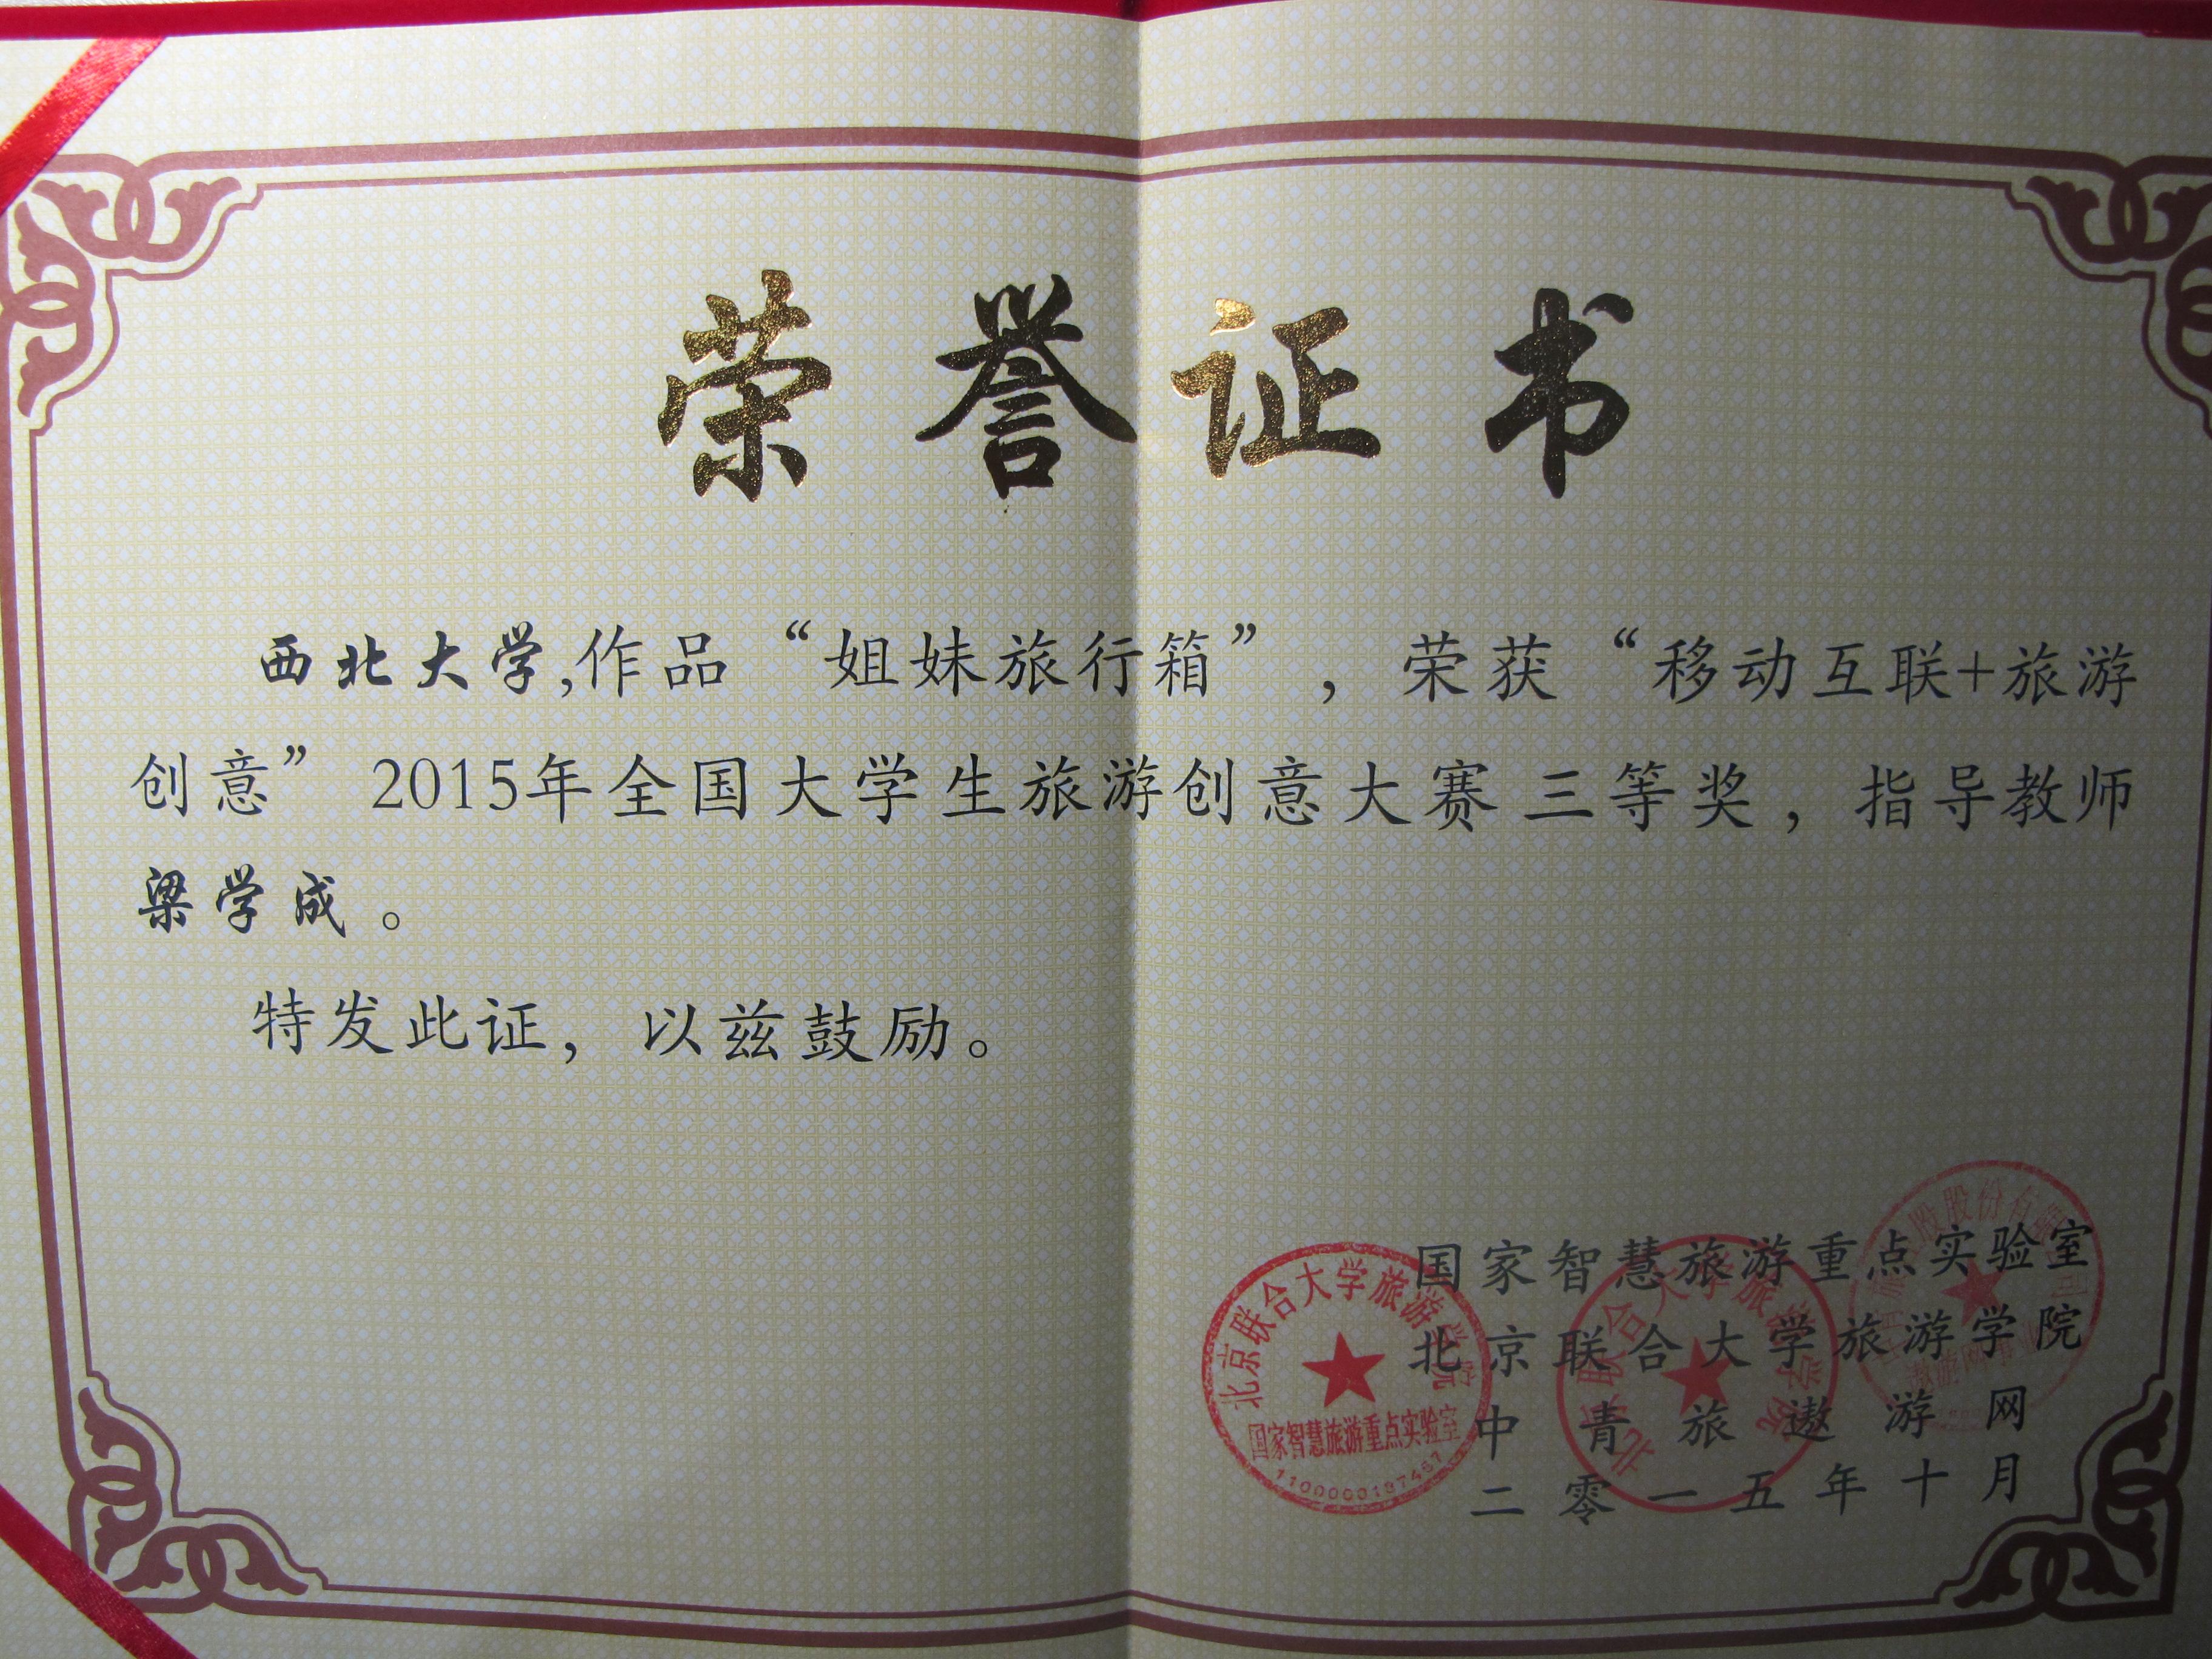 荣誉证书
西北大学,作品“姐妹旅行箱”，荣获“移动互联+旅游
创意”2015年全国大学生旅游创意大赛三等奖，指导教师
梁学成。
特发此证，以兹鼓励。
国家智慧旅游重点实验室
北京联合大学旅游学院
中青旅遨游网
二零一五年十月
北京联合大学旅游学院
国家智慧旅游重点实验室
北京联合大学旅游学院
股份有